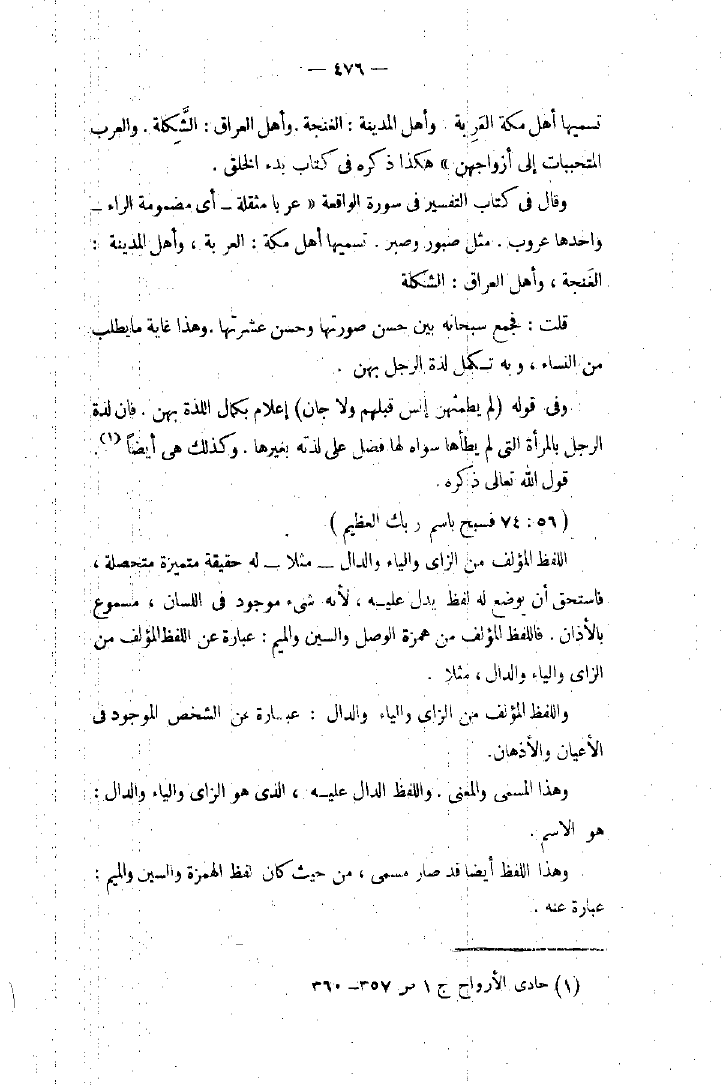 — ٤٧٦ —
تسميها أهل مكة العَرِبة . وأهل المدينة : الغنجة . وأهل العراق : الشَّكِلة . والعرب
المتحببات إلى أزواجهن » هكذا ذكره فى كتاب بدء الخلق .
وقال فى كتاب التفسير فى سورة الواقعة « عربا مثقلة – أى مضمومة الراء –
واحدها عروب . مثل صبور وصبر . تسميها أهل مكة : العربة ، وأهل المدينة :
الغَنجة ، وأهل العراق : الشكلة
قلت : فجمع سبحانه بين حسن صورتها وحسن عشرتها . وهذا غاية مايطلب
من النساء ، وبه تكمل لذة الرجل بهن .
وفى قوله (لم يطمثهن إنس قبلهم ولا جان) إعلام بكمال اللذة بهن . فان لذة
الرجل بالمرأة التى لم يطأها سواه لها فضل على لذته بغيرها . وكذلك هى أيضاً (١) .
قول الله تعالى ذكره .
( ٥٦ : ٧٤ فسبح باسم ربك العظيم )
اللفظ المؤلف من الزاى والياء والدال – مثلا – له حقيقة متميزة متحصلة ،
فاستحق أن يوضع له لفظ يدل عليه ، لأنه شىء موجود فى اللسان ، مسموع
بالأذان . فاللفظ المؤلف من همزة الوصل والسين والميم : عبارة عن اللفظ المؤلف من
الزاى والياء والدال ، مثلا .
واللفظ المؤلف من الزاى والياء والدال : عبارة عن الشخص الموجود فى
الأعيان والأذهان.
وهذا المسمى والمعنى . واللفظ الدال عليه ، الذى هو الزاى والياء والدال :
هو الاسم .
وهذا اللفظ أيضا قد صار مسمى ، من حيث كان لفظ الهمزة والسين والميم :
عبارة عنه .
(١) حادى الأرواح ج ١ ص ٣٥٧– ٣٦٠